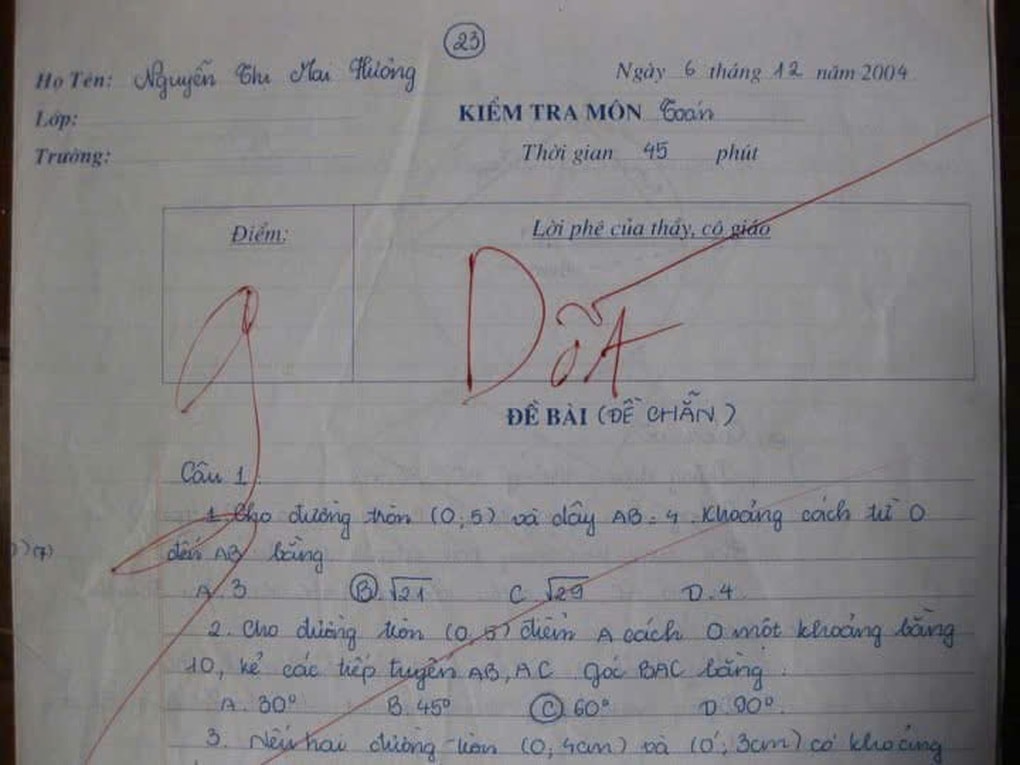 23
Họ Tên: Nguyễn Thị Mai Hường
Ngày 6 tháng 12 năm 2004
Lớp:
KIỂM TRA MÔN Toán
Trường:
Thời gian 45 phút
Điểm:
Lời phê của thầy, cô giáo
9
ĐỀ BÀI (ĐỀ CHẴN)
Câu 1
1. Cho đường tròn (O,5) và dây AB = 4. Khoảng cách từ O
đến AB bằng
A. 3 B. √21 C √29 D. 4
2. Cho đường tròn (O,5) điểm A cách O một khoảng bằng
10, kẻ các tiếp tuyến AB, AC góc BAC bằng:
A. 30° B. 45° C. 60° D. 90°.
3. Nếu hai đường tròn (O, 4cm) và (O', 3cm) có khoảng